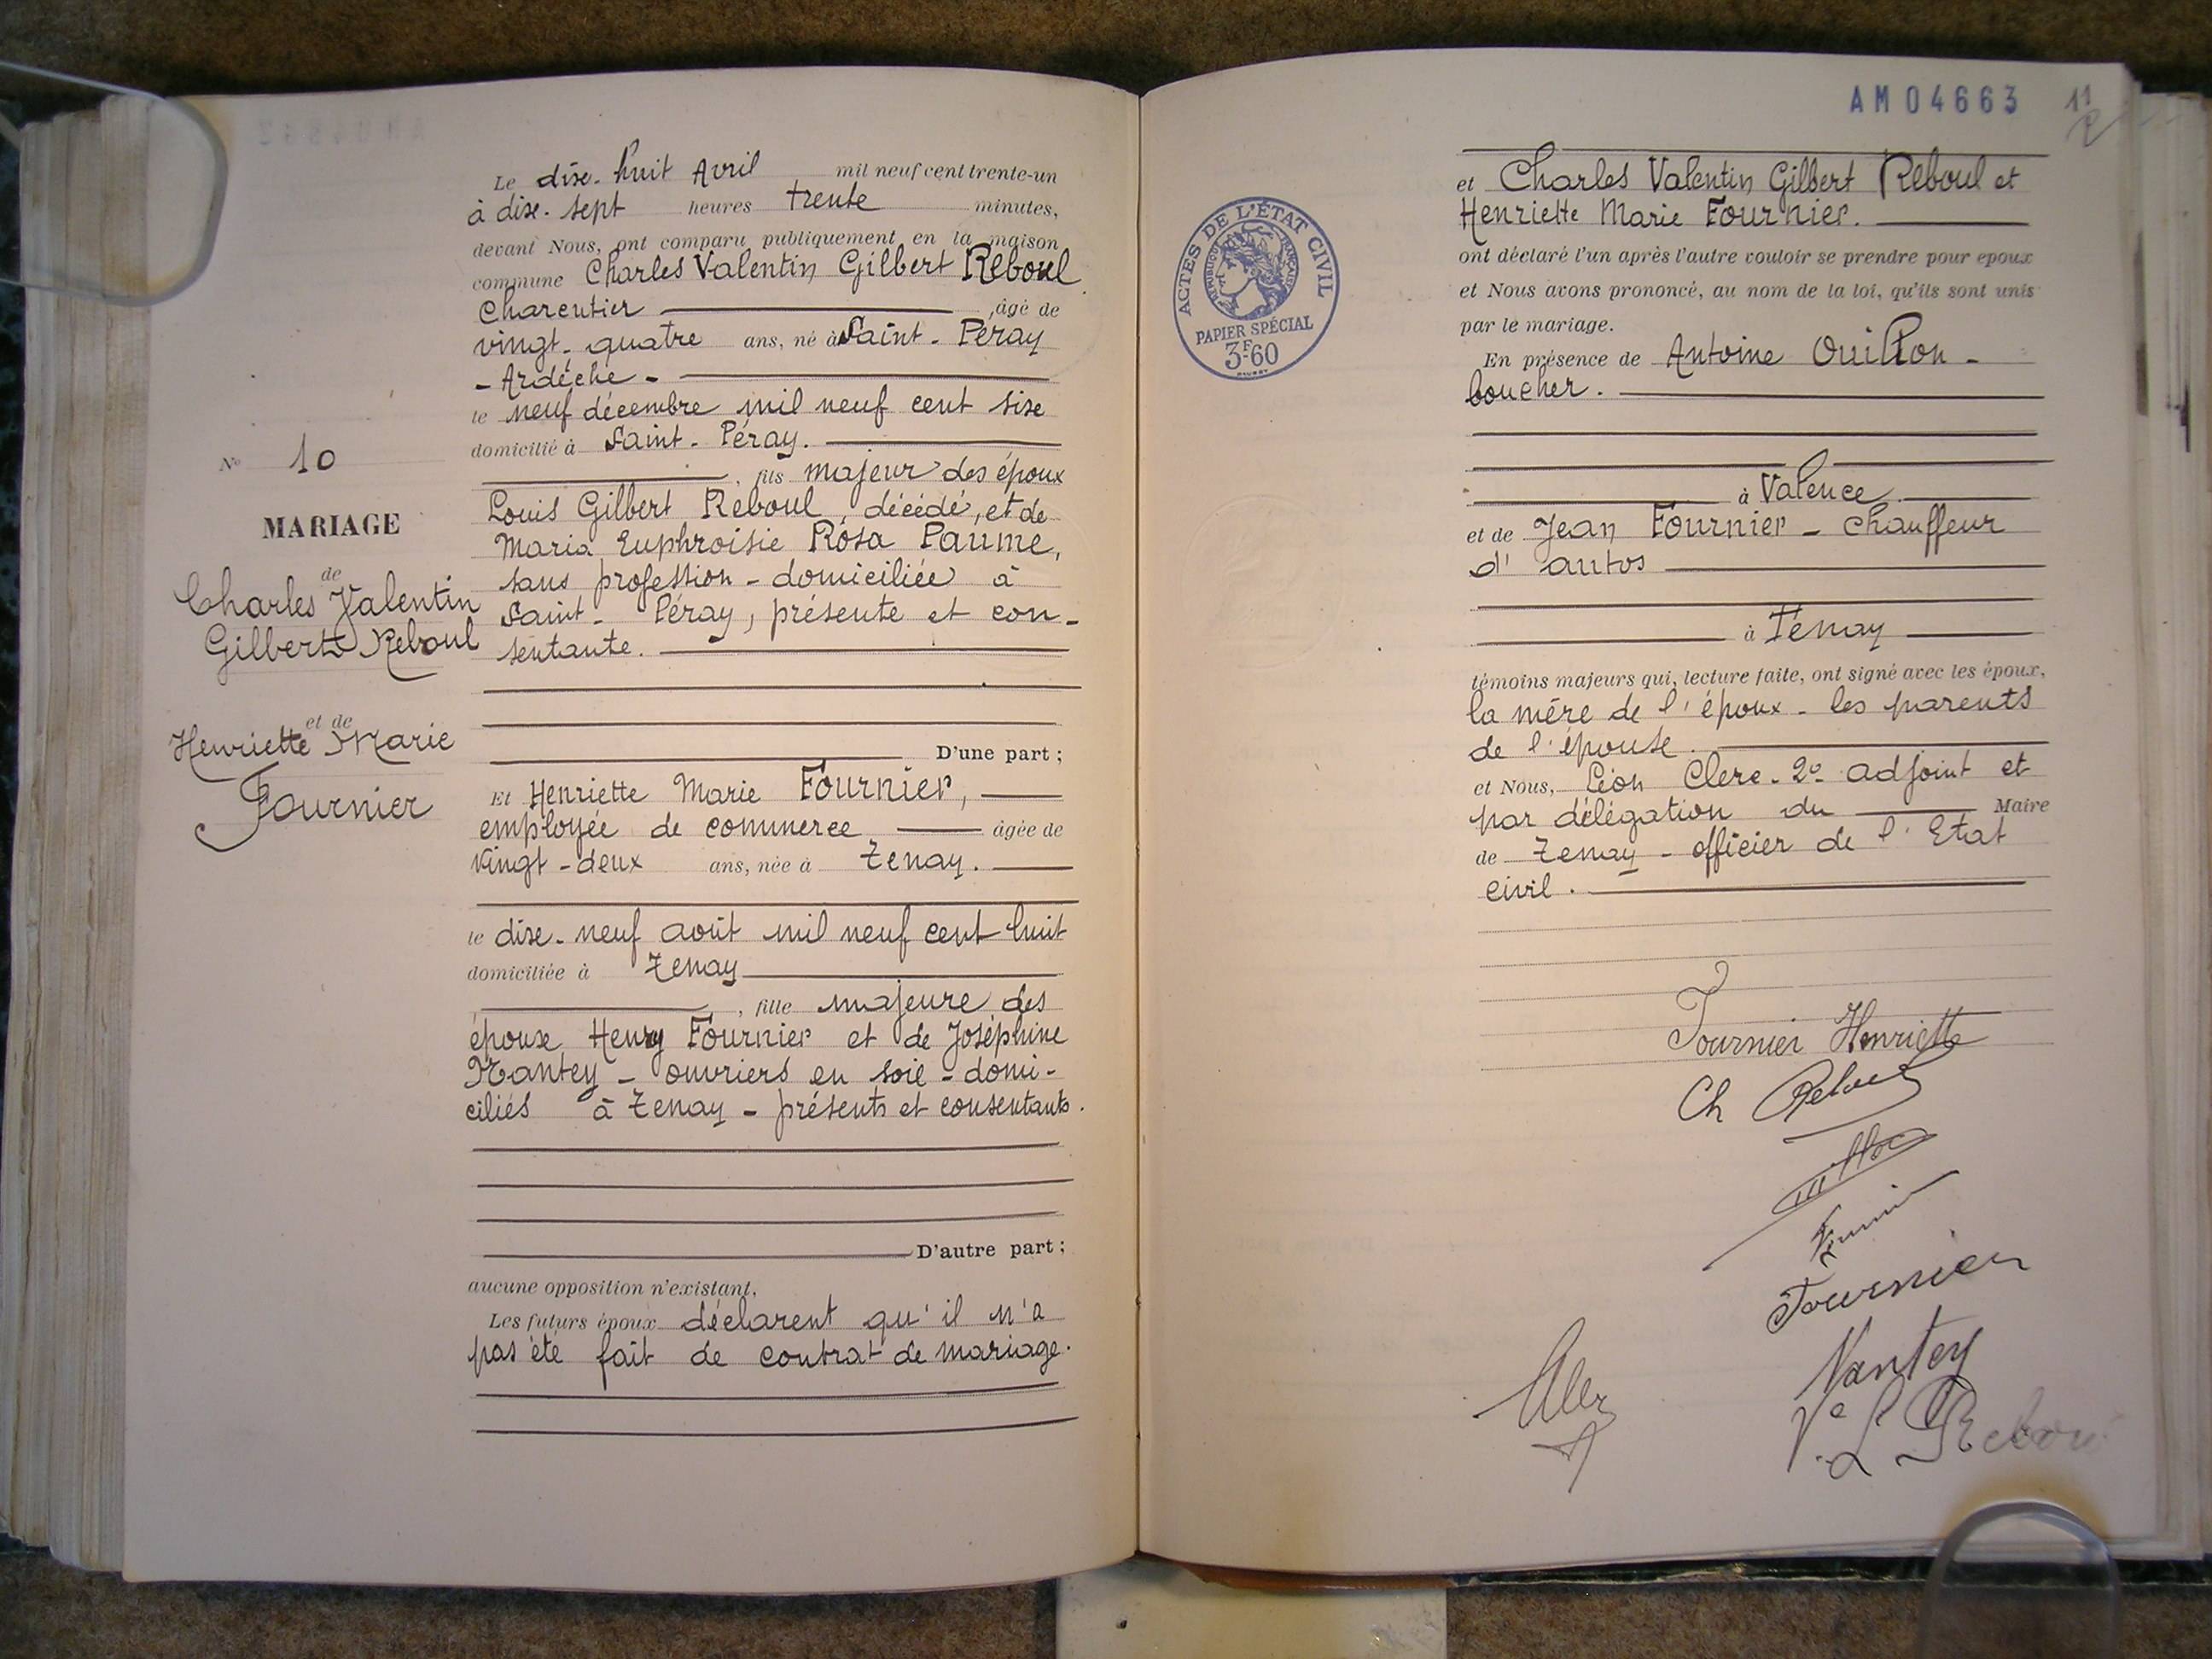 Le dix-huit Avril mil neuf cent trente-un
à dix-sept heures trente minutes,
devant Nous, ont comparu publiquement en la maison
commune Charles Valentin Gilbert Reboul
Charcutier ,âgé de
vingt-quatre ans, né à Saint-Péray
- Ardèche -
le neuf décembre mil neuf cent six
domicilié à Saint-Péray.
, fils majeur des époux
Louis Gilbert Reboul, décédé, et de
Maria Euphroisie Rosa Paume,
sans profession - domiciliée à
Saint-Péray, présente et con-
sentante.
D'une part ;
Et Henriette Marie Fournier,
employée de commerce âgée de
vingt-deux ans, née à Tenay.
le dix-neuf août mil neuf cent huit
domiciliée à Tenay
, fille majeure des
époux Henry Fournier et de Joséphine
Nantey - ouvriers en soie - domi-
ciliés à Tenay - présents et consentants.
D'autre part ;
aucune opposition n'existant,
Les futurs époux déclarent qu'il n'a
pas été fait de contrat de mariage.
No 10
MARIAGE
de
Charles Valentin
Gilbert Reboul
et de
Henriette Marie
Fournier
AM04663
11
ACTES DE L'ÉTAT CIVIL
RÉPUBLIQUE FRANÇAISE
PAPIER SPÉCIAL
3F60
et Charles Valentin Gilbert Reboul et
Henriette Marie Fournier.
ont déclaré l'un après l'autre vouloir se prendre pour époux
et Nous avons prononcé, au nom de la loi, qu'ils sont unis
par le mariage.
En présence de Antoine Ouillon -
boucher.
à Valence
et de Jean Fournier - chauffeur
d'autos
à Tenay
témoins majeurs qui, lecture faite, ont signé avec les époux,
la mère de l'époux - les parents
de l'épouse.
et Nous, Léon Clerc - 2e adjoint et
par délégation du Maire
de Tenay - officier de l'Etat
civil.
Fournier Henriette
Ch Reboul
Fournier
Nantey
Ve L Reboul